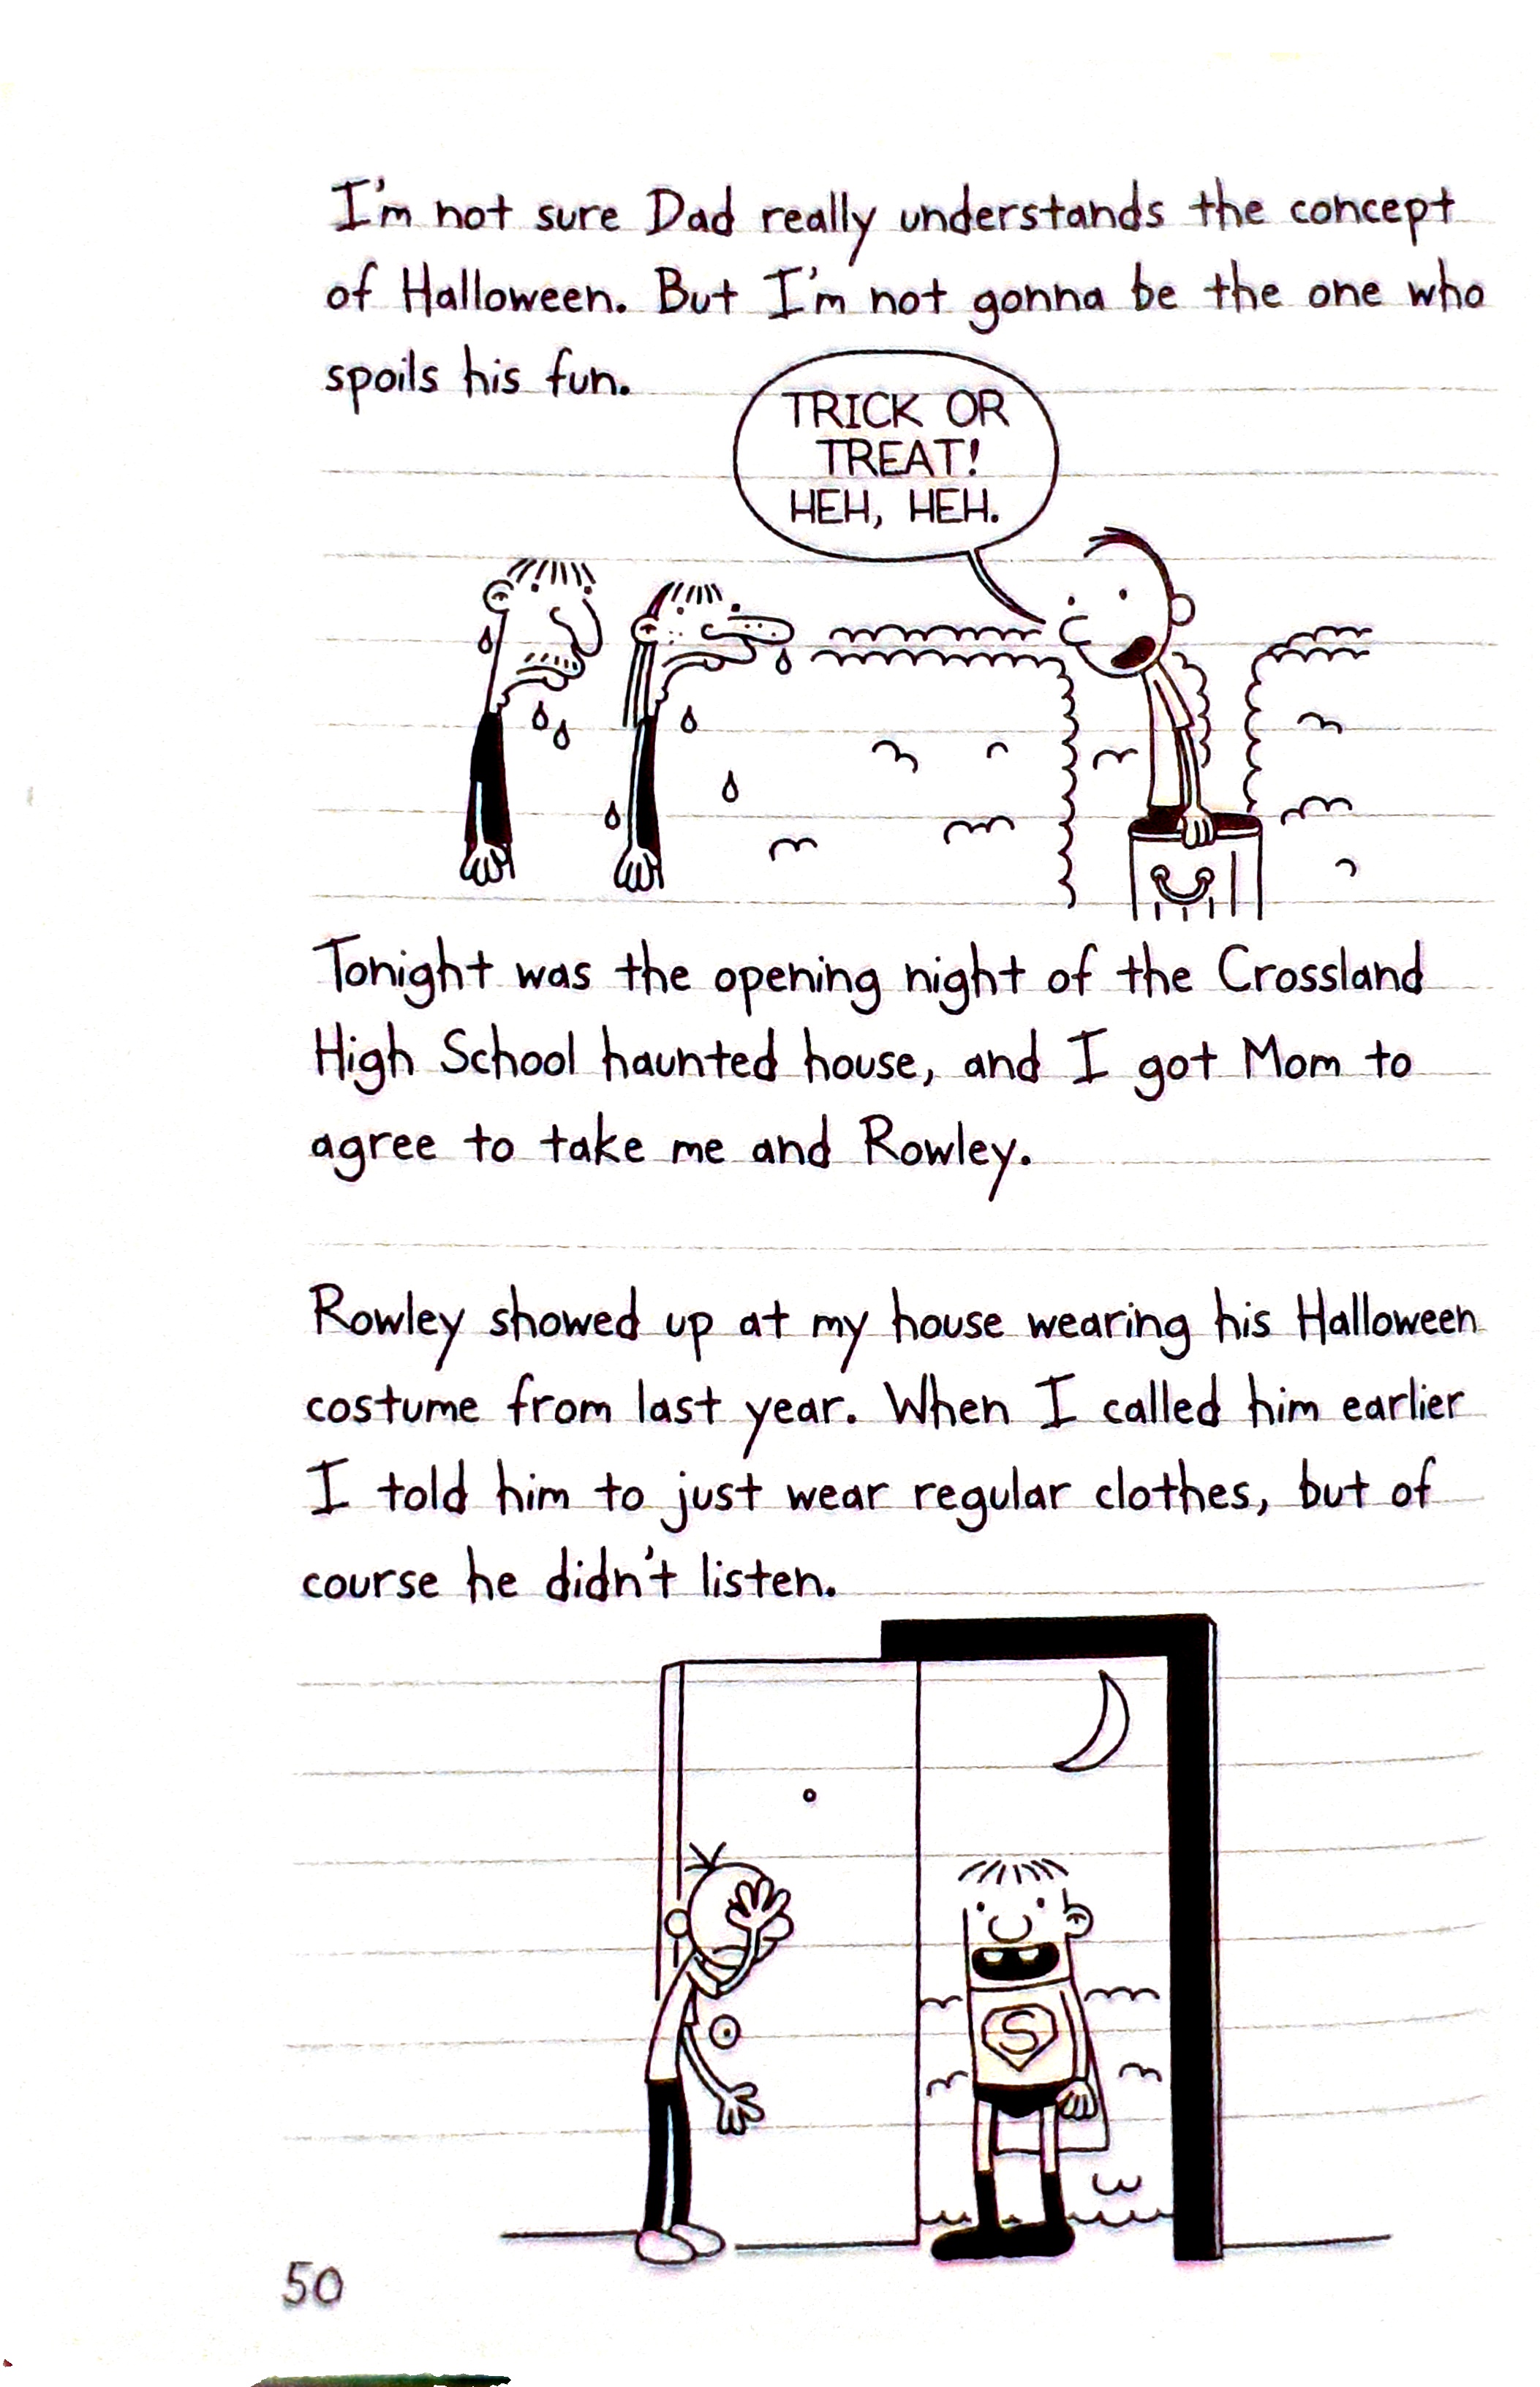 I'm not sure Dad really understands the concept
of Halloween. But I'm not gonna be the one who
spoils his fun.
TRICK OR
TREAT!
HEH, HEH.
Tonight was the opening night of the Crossland
High School haunted house, and I got Mom to
agree to take me and Rowley.
Rowley showed up at my house wearing his Halloween
costume from last year. When I called him earlier
I told him to just wear regular clothes, but of
course he didn't listen.
S
50